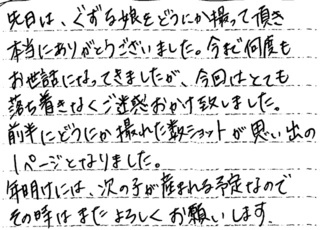 先日は、ぐずる娘をどうにか撮って頂き
本当にありがとうございました。今まで何度も
お世話になってきましたが、今回はとても
落ち着きなくご迷惑おかけ致しました。
前半にどうにか撮れた数ショットが思い出の
1ページとなりました。
年明けには、次の子が産まれる予定なので
その時はまたよろしくお願いします。